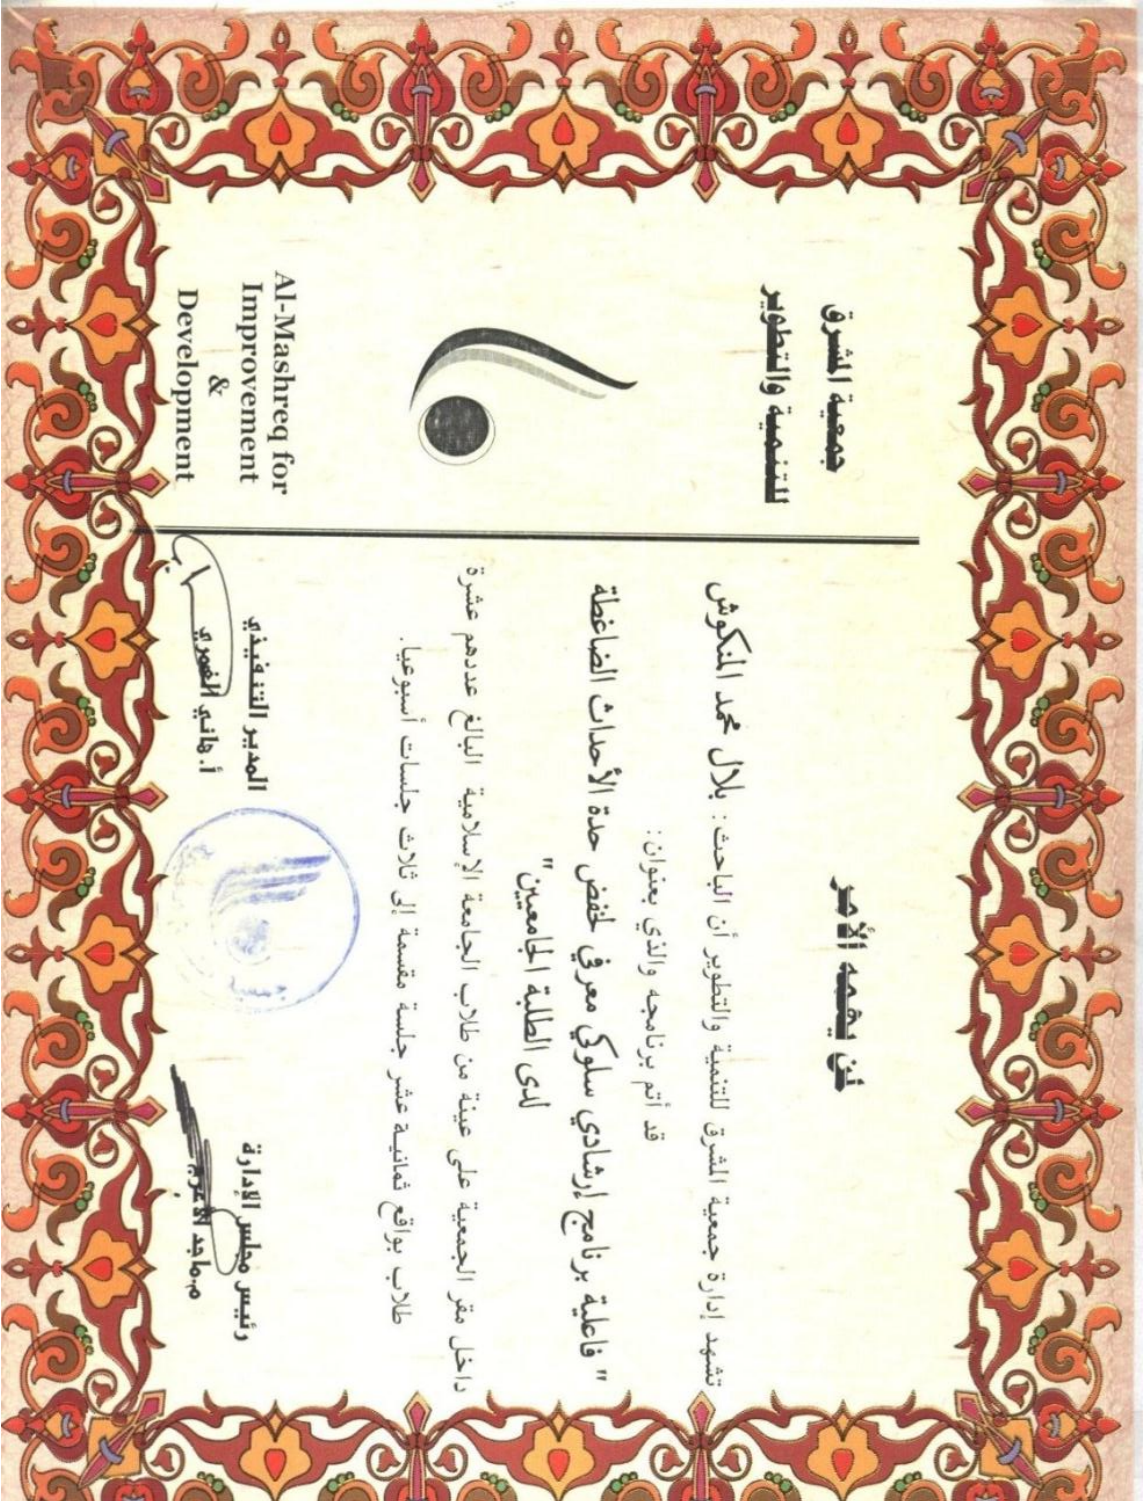 جمعية المشرق
للتنمية والتطوير
Al-Mashreq for
Improvement
&
Development
لمن يهمه الأمر
تشهد إدارة جمعية المشرق للتنمية والتطوير أن الباحث: بلال محمد المنكوش
قد أتم برنامجه والذي بعنوان:
" فاعلية برنامج إرشادي سلوكي معرفي لخفض حدة الأحداث الضاغطة
لدى الطلبة الجامعين"
داخل مقر الجمعية على عينة من طلاب الجامعة الإسلامية البالغ عددهم عشرة
طلاب بواقع ثمانية عشر جلسة مقسمة إلى ثلاث جلسات أسبوعيا.
رئيس مجلس الإدارة
م.ماجد الأعرج
المدير التنفيذي
أ. هاني الغمري